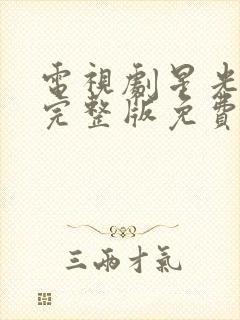 電視劇星光
完整版免費
三兩才氣